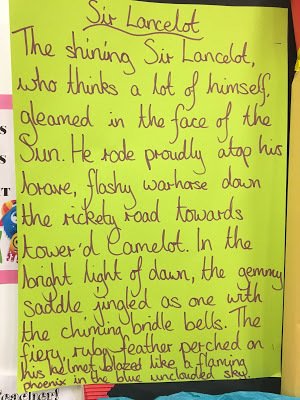 Sir Lancelot
The shining Sir Lancelot,
who thinks a lot of himself,
gleamed in the face of the
Sun. He rode proudly atop his
brave, flashy warhorse down
the rickety road towards
tower'd Camelot. In the
bright light of dawn, the gemmy
saddle jingled as one with
the chinting bridle bells. The
fiery, ruby feather perched on
his helmet blazed like a flaming
phoenix in the blue unclouded sky.